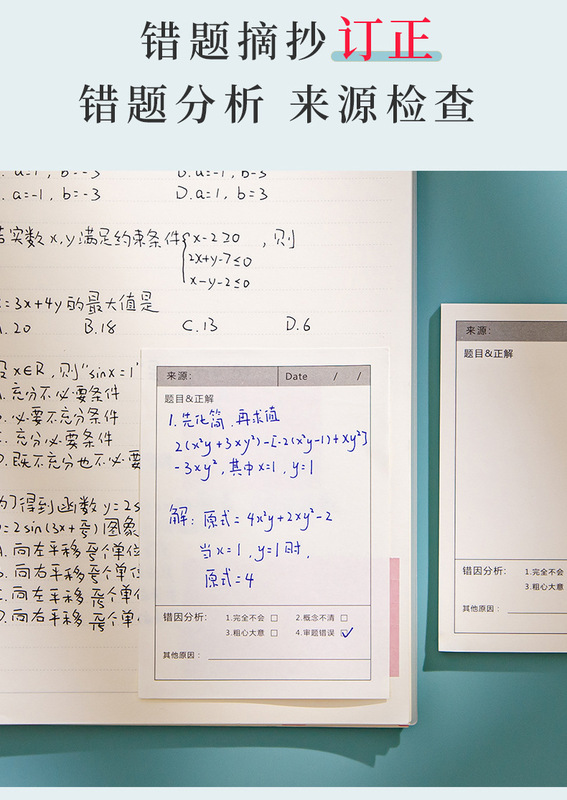 错题摘抄订正
错题分析 来源检查
. a=1, b=-3
D. a=-1, b=-3
. a=-1, b=-3
D. a=1, b=3
若实数x,y满足约束条件{x-2≥0
2x+y-7≤0
x-y-2≤0
,则
z=3x+4y的最大值是
A.20 B.18 C.13 D.6
设x∈R,则"sinx=1"
A.充分不必要条件
B.必要不充分条件
C.充分必要条件
D.既不充分也不必要
为了得到函数y=2s
y=2sin(3x+π/5)图象
A.向左平移π/5个单位
B.向右平移π/5个单位
C.向左平移π/15个单
D.向右平移π/15个单
来源: Date / /
题目&正解
1.先化简,再求值
2(x²y+3xy²)-[-2(x²y-1)+xy²]
-3xy²,其中x=1,y=1
解:原式=4x²y+2xy²-2
当x=1,y=1时,
原式=4
错因分析: 1.完全不会 □ 2.概念不清 □
3.粗心大意 □ 4.审题错误 ☑
其他原因:
来源:
题目&正解
错因分析: 1.完全不会
3.粗心大意
其他原因: